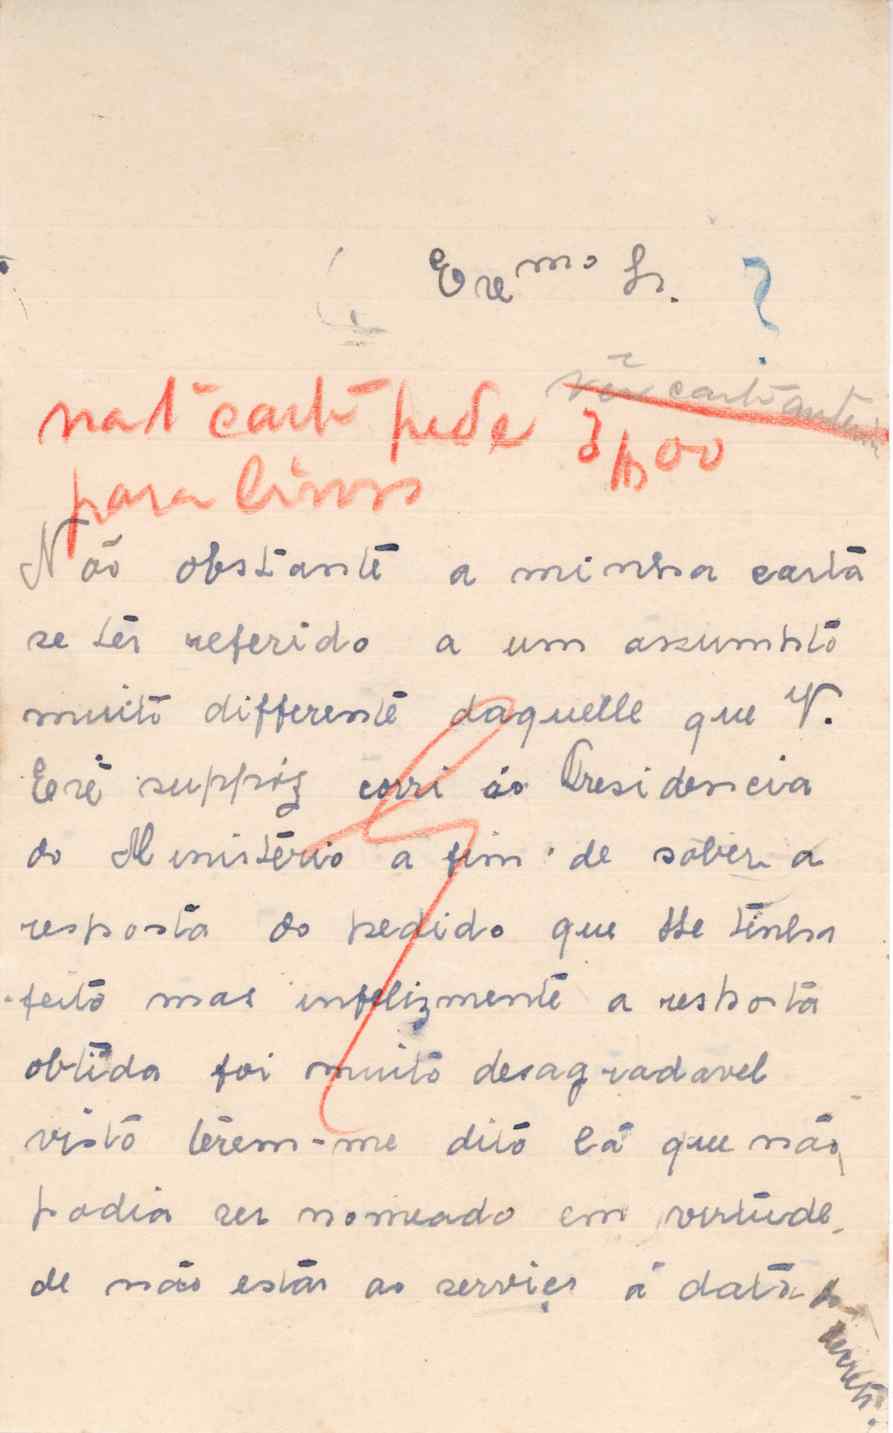 Exᵐᵒ Sr. ?
vêr carta anterior
na 1ª carta pede 3$00
para livros
Não obstante a minha carta
se ter referido a um assumpto
muito differente daquelle que V.
Exª suppôz corri ás Presidencia
do Ministério a fim de saber a
resposta do pedido que lhe tinha
feito mas infelizmente a resposta
obtida foi muito desagradavel
visto terem-me dito lá que não
podia ser nomeado em virtude
de não estar ao serviço á data do
decreto.